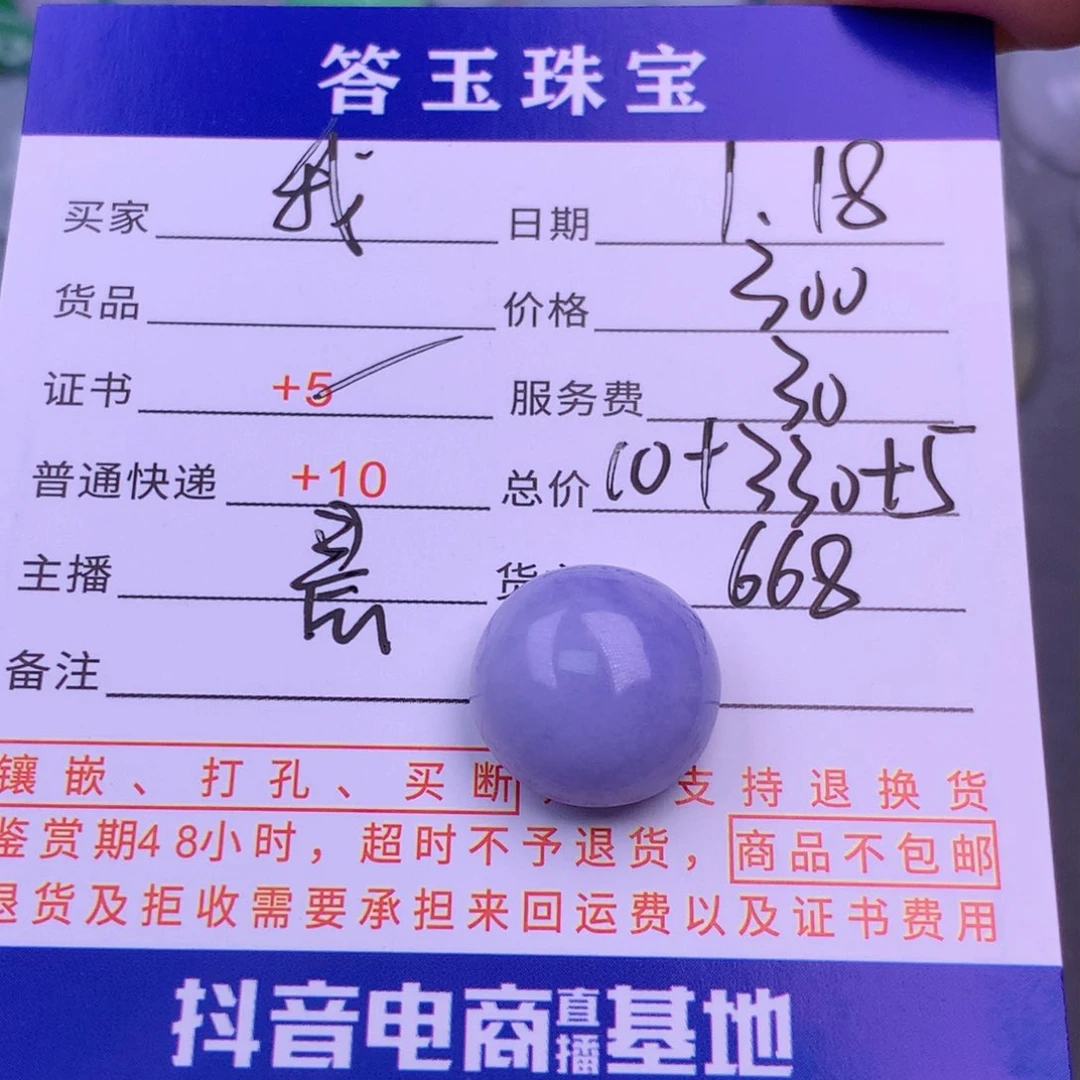 答玉珠宝
买家 我 日期 1.18
货品 价格 300
证书 +5 服务费 30
普通快递 +10 总价 10+330+5
主播 货 668
备注
镶嵌、打孔、买断, 支持退换货
鉴赏期48小时，超时不予退货，商品不包邮
退货及拒收需要承担来回运费以及证书费用
抖音电商直播基地